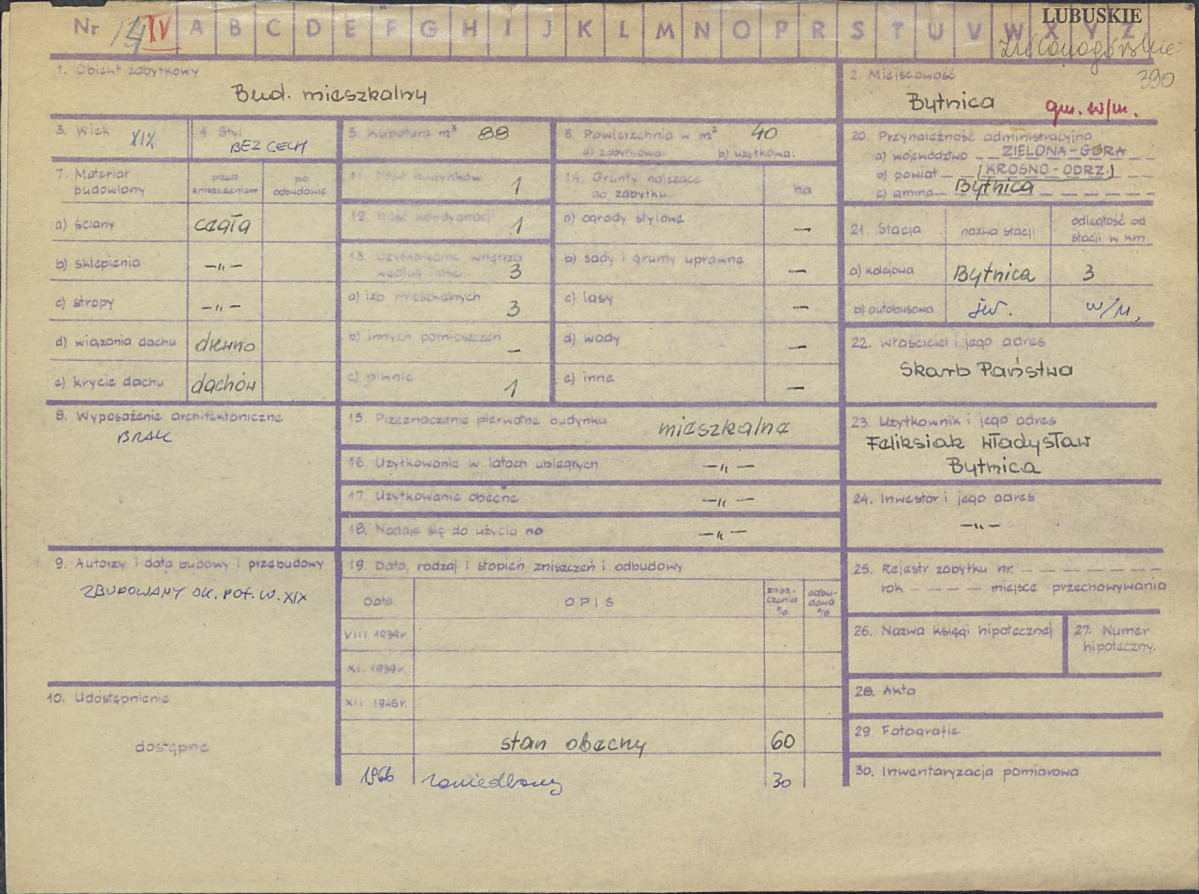 Nr IV A B C D E F G H I J K L M N O P R S T U V W X Y Z
LUBUSKIE
Zielonogórskie
390
1. Obiekt zabytkowy
Bud. mieszkalny
2. Miejscowość
Bytnica gm. w/m.
3. Wiek XIX
4. Styl
BEZ CECH
5. Kubatura m³ 88
6. Powierzchnia w m² 40
a) zabytkowa: b) użytkowa:
7. Materiał budowlany
przed zniszczeniem
po odbudowie
a) ściany cegła
b) sklepienia —„—
c) stropy —„—
d) wiązania dachu drewno
e) krycie dachu dachów
8. Wyposażenie architektoniczne
BRAK
9. Autorzy i data budowy i przebudowy
ZBUDOWANY OK. POŁ. W. XIX
10. Udostępnienie
dostępne
11. Ilość budynków 1
12. Ilość kondygnacji 1
13. Użytkowanie wnętrza według ilości 3
a) izb mieszkalnych 3
b) innych pomieszczeń —
c) piwnic 1
14. Grunty należące do zabytku
ha
a) ogrody stylowe —
b) sady i grunty uprawne —
c) lasy —
d) wody —
e) inne —
15. Przeznaczenie pierwotne budynku mieszkalne
16. Użytkowanie w latach ubiegłych —„—
17. Użytkowanie obecne —„—
18. Nadaje się do użycia na —„—
19. Data, rodzaj i stopień zniszczeń i odbudowy
Data
OPIS
znisz-czenia %
odbu-dowa %
VIII 1939r.
XI. 1939r.
XII 1945r.
stan obecny 60
1966 zaniedbany 30
20. Przynależność administracyjna
a) województwo ZIELONA-GÓRA
b) powiat (KROSNO-ODRZ.)
c) gmina Bytnica
21. Stacja
nazwa stacji
odległość od stacji w km.
a) kolejowa Bytnica 3
b) autobusowa jw. w/m,
22. Właściciel i jego adres
Skarb Państwa
23. Użytkownik i jego adres
Feliksiak Władysław
Bytnica
24. Inwestor i jego adres
—„—
25. Rejestr zabytku nr. — — — — — — —
rok — — — — miejsce przechowywania
26. Nazwa księgi hipotecznej
27. Numer hipoteczny.
28. Akta
29. Fotografie
30. Inwentaryzacja pomiarowa